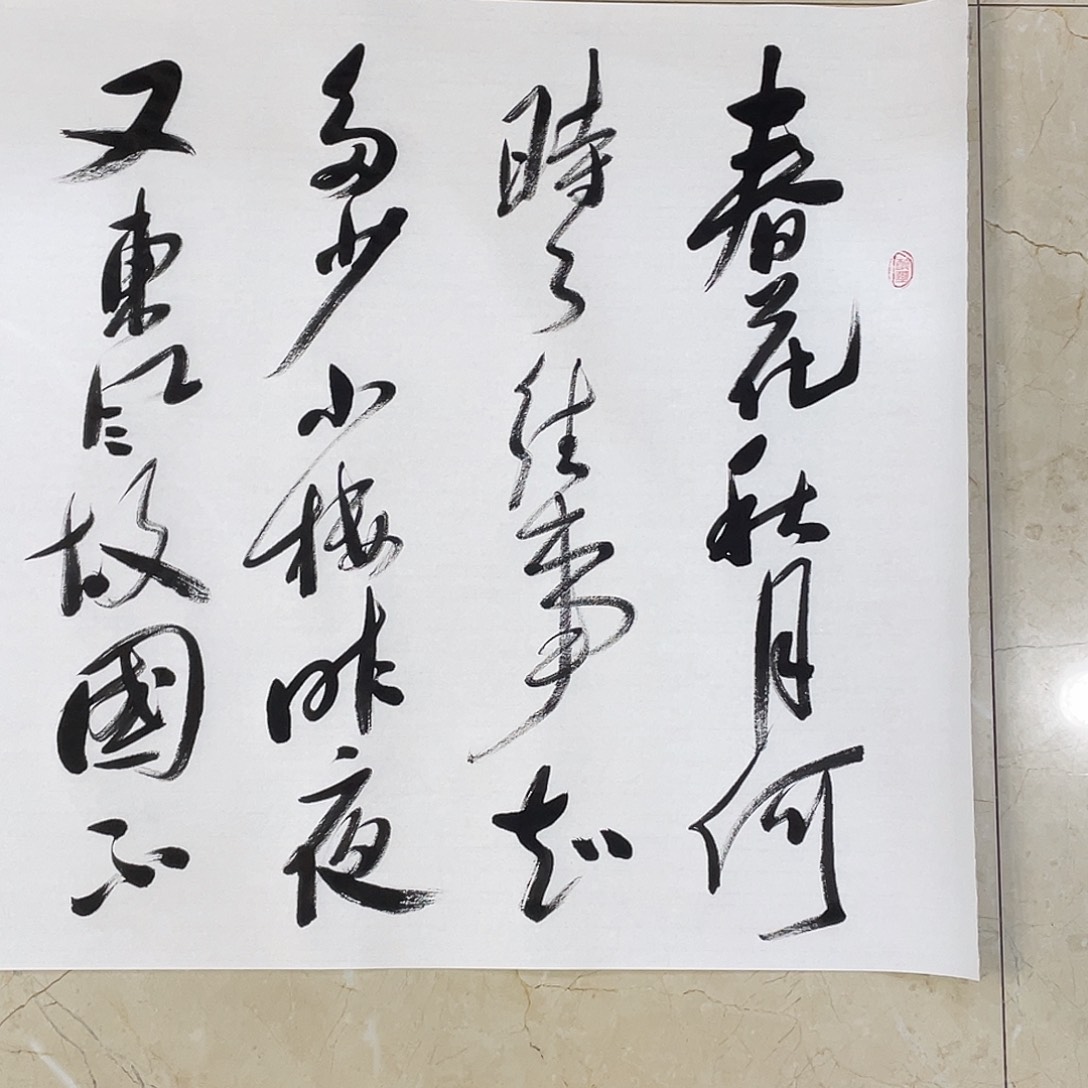 春花秋月何
時了往事知
多少小樓昨夜
又東風故國不